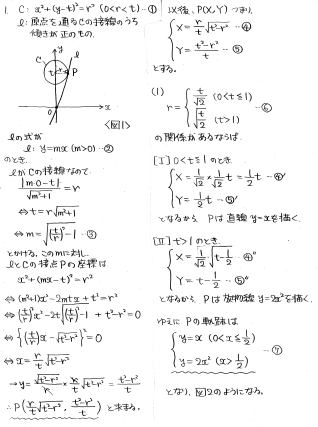 1. C: x²+(y-t)²=r² (0<r<t) …①
l: 原点を通るCの接線のうち
傾きが正のもの.
y
C
l
t
r
P
O
x
<図1>
lの式が
l: y=mx (m>0) …②
のとき.
lがCの接線なので
|m・0-t|/√(m²+1) = r
⇔ t=r√(m²+1)
⇔ m=√((t/r)²-1) …③
とかける. このmに対し.
lとCの接点Pの座標は
x²+(mx-t)²=r²
⇔ (m²+1)x²-2mtx+t²=r²
⇔ (t/r)²x²-2t√((t/r)²-1) x+t²-r²=0
⇔ {(t/r)x-√(t²-r²)}²=0
⇔ x=(r/t)√(t²-r²)
→ y=√(t²-r²)/r × (r/t)√(t²-r²) = (t²-r²)/t
∴ P((r/t)√(t²-r²), (t²-r²)/t) と求まる.
以後, P(X,Y) つまり,
{ X=(r/t)√(t²-r²) …④
Y=(t²-r²)/t …⑤
とする.
(1)
r={ t/√2 (0<t≦1)
√(t/2) (t>1) …⑥
の関係があるならば.
[I] 0<t≦1のとき
{ X=1/√2 × 1/√2 t=1/2 t …④'
Y=1/2 t …⑤'
となるから Pは直線y=xを描く.
[II] t>1のとき.
{ X=1/√2 √(t-1/2) …④''
Y=t-1/2 …⑤''
となるから Pは放物線y=2x²を描く.
ゆえに Pの軌跡は
{ y=x (0<x≦1/2)
y=2x² (x>1/2) …⑦
となり, 図2のようになる.